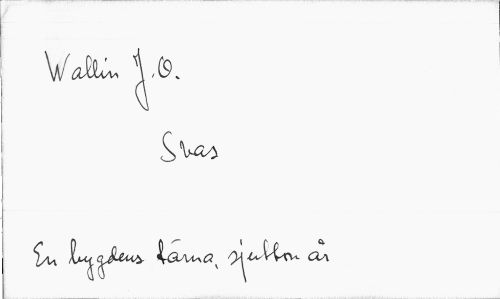 Wallin J.O.
Svas
En bygdens tärna, sjutton år